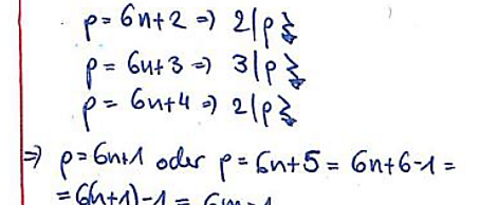 p=6n+2 => 2|p ↯
p=6n+3 => 3|p ↯
p=6n+4 => 2|p ↯
=> p=6n+1 oder p=6n+5=6n+6-1=
=6(n+1)-1=6m-1